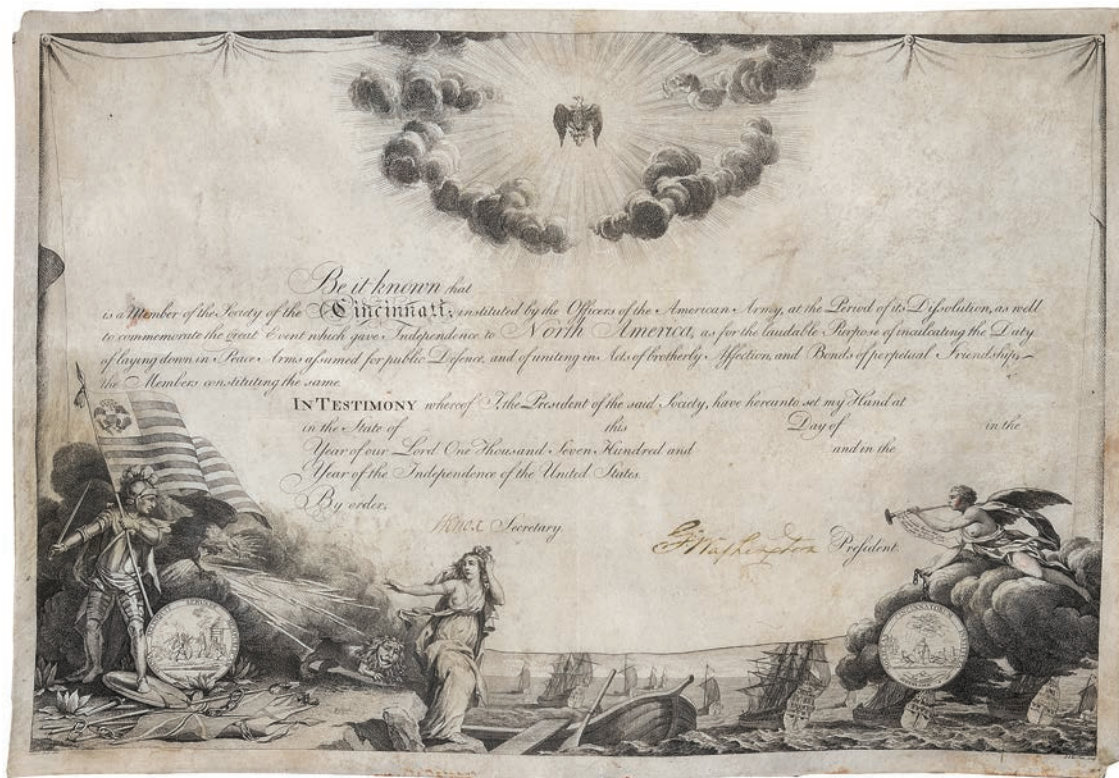 Be it known that
is a Member of the Society of the Cincinnati; instituted by the Officers of the American Army, at the Period of its Dissolution, as well
to commemorate the great Event which gave Independence to North America, as for the laudable Purpose of inculcating the Duty
of laying down in Peace Arms assumed for public Defence, and of uniting in Acts of brotherly Affection, and Bonds of perpetual Friendship,
the Members constituting the same.
IN TESTIMONY whereof I, the President of the said Society, have hereunto set my Hand at
in the State of this Day of in the
Year of our Lord One Thousand Seven Hundred and and in the
Year of the Independence of the United States.
By order,
HKnox Secretary.
G:Washington President.